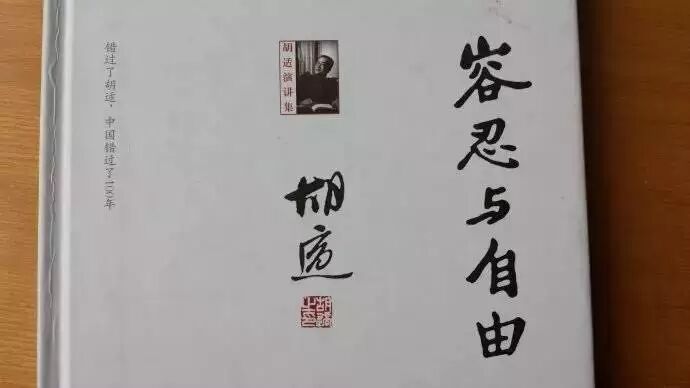 容忍与自由
胡适演讲集
胡適
胡適之印
错过了胡适，中国错过了100年